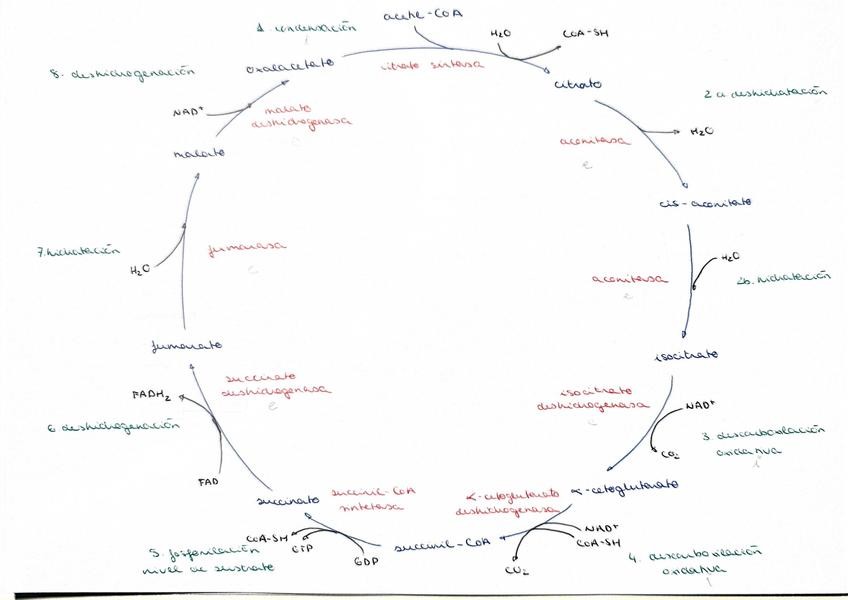 acetil-CoA
1. condensación
H₂O
CoA-SH
oxalacetato
citrato sintasa
citrato
8. deshidrogenación
2a deshidratación
NAD⁺
malato
deshidrogenasa
aconitasa
H₂O
e
malato
cis-aconitato
7. hidratación
fumarasa
H₂O
aconitasa
H₂O
2b. hidratación
e
fumarato
isocitrato
succinato
deshidrogenasa
e
isocitrato
deshidrogenasa
FADH₂
NAD⁺
6 deshidrogenación
3. descarboxilación
oxidativa
CO₂
FAD
succinato
succinil-CoA
sintetasa
α-cetoglutarato
deshidrogenasa
α-cetoglutarato
CoA-SH
GTP
GDP
succinil-CoA
NAD⁺
CoA-SH
CO₂
5. fosforilación
nivel de sustrato
4. descarboxilación
oxidativa